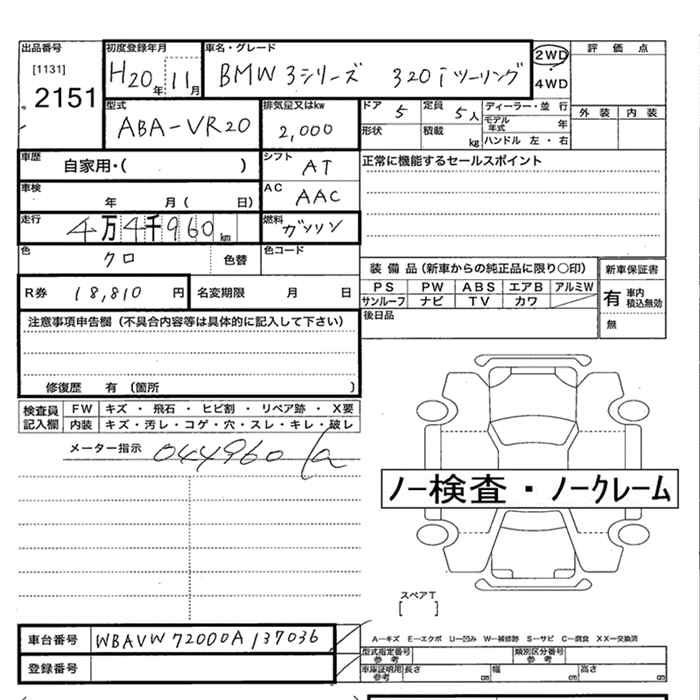 出品番号 初度登録年月 車名・グレード 2WD 評価点
[1131] H20年 11月 BMW 3シリーズ 320iツーリング 4WD
2151
型式 排気量又はkw ドア 5 定員 5人 ディーラー・並行 外装 内装
ABA-VR20 2,000 形状 積載 kg モデル年式 年
ハンドル 左・右
車歴 自家用・( ) シフト AT 正常に機能するセールスポイント
車検 年 月( 日) AC AAC
走行 4万4千960km 燃料 ガソリン
色 クロ 色替 色コード
装備品(新車からの純正品に限り〇印) 新車保証書
R券 18,810円 名変期限 月 日 PS PW ABS エアB アルミW 有 車内積込無効
サンルーフ ナビ TV カワ
注意事項申告欄(不具合内容等は具体的に記入して下さい) 後日品 無
修復歴 有 (箇所 )
検査員記入欄 FW キズ・飛石・ヒビ割・リペア跡・X要
内装 キズ・汚レ・コゲ・穴・スレ・キレ・破レ
メーター指示 044960
ノー検査・ノークレーム
スペアT
[ ]
車台番号 WBAVW72000A137036 A―キズ E―エクボ U―凹み W―補修跡 S―サビ C―腐食 XX―交換済
登録番号 型式指定番号 参考 類別区分番号 参考
車庫証明用 参考 長さ cm 幅 cm 高さ cm